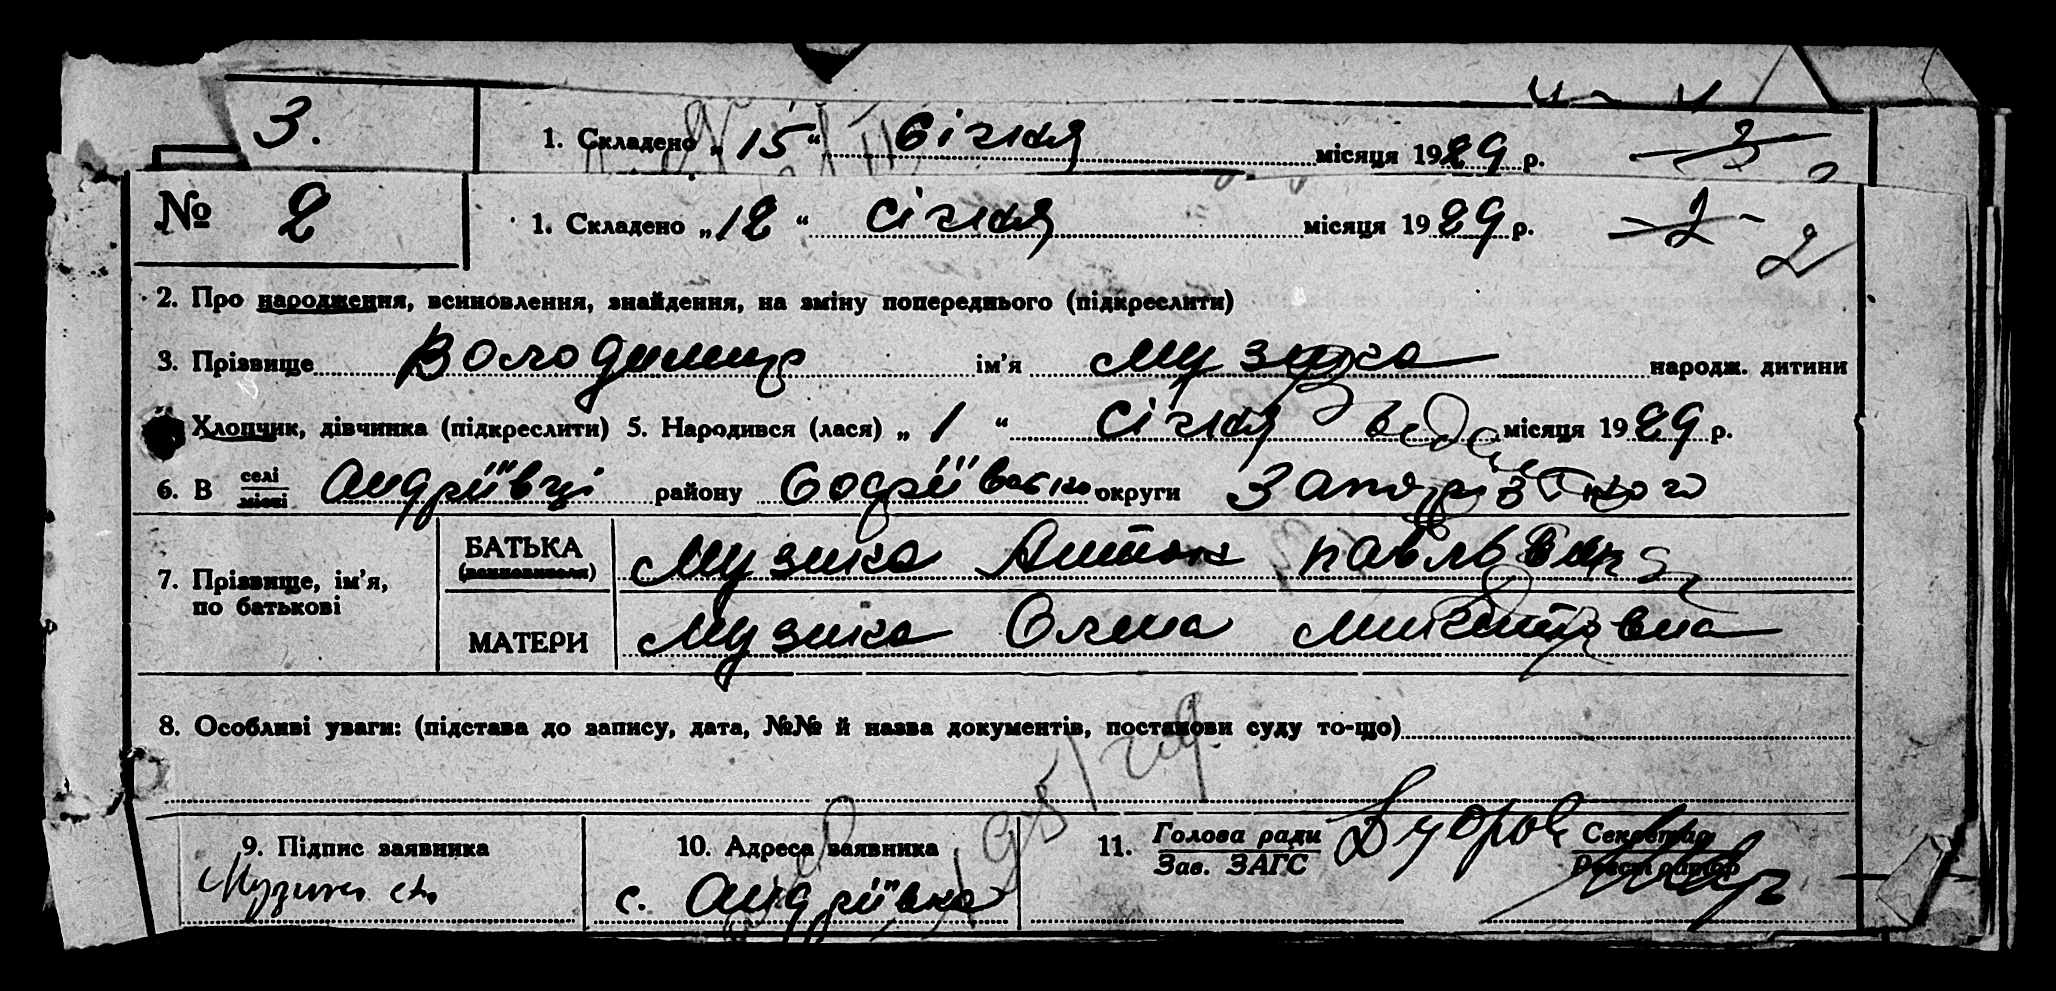 3.
1. Складено „ 15 “ січня місяця 1929 р. 3
№ 2
1. Складено „ 12 “ січня місяця 1929 р. 2
2
2. Про народження, всиновлення, знайдення, на зміну попереднього (підкреслити)
3. Прізвище Володимир ім’я Музика народж. дитини
Хлопчик, дівчинка (підкреслити) 5. Народився (лася) „ 1 “ січня місяця 1929 р.
6. В селі місті Андріївці району Софіївсько округи Запорізького
7. Прізвище, ім’я, по батькові
БАТЬКА (всиновителя) Музика Антон Павльвич
МАТЕРИ Музика Олена Микитовна
8. Особливі уваги: (підстава до запису, дата, №№ й назва документів, постанови суду то-що)
9. Підпис заявника
Музика
10. Адреса заявника
с. Андріївка
11. Голова ради Зав. ЗАГС
Секретар Реєстратор